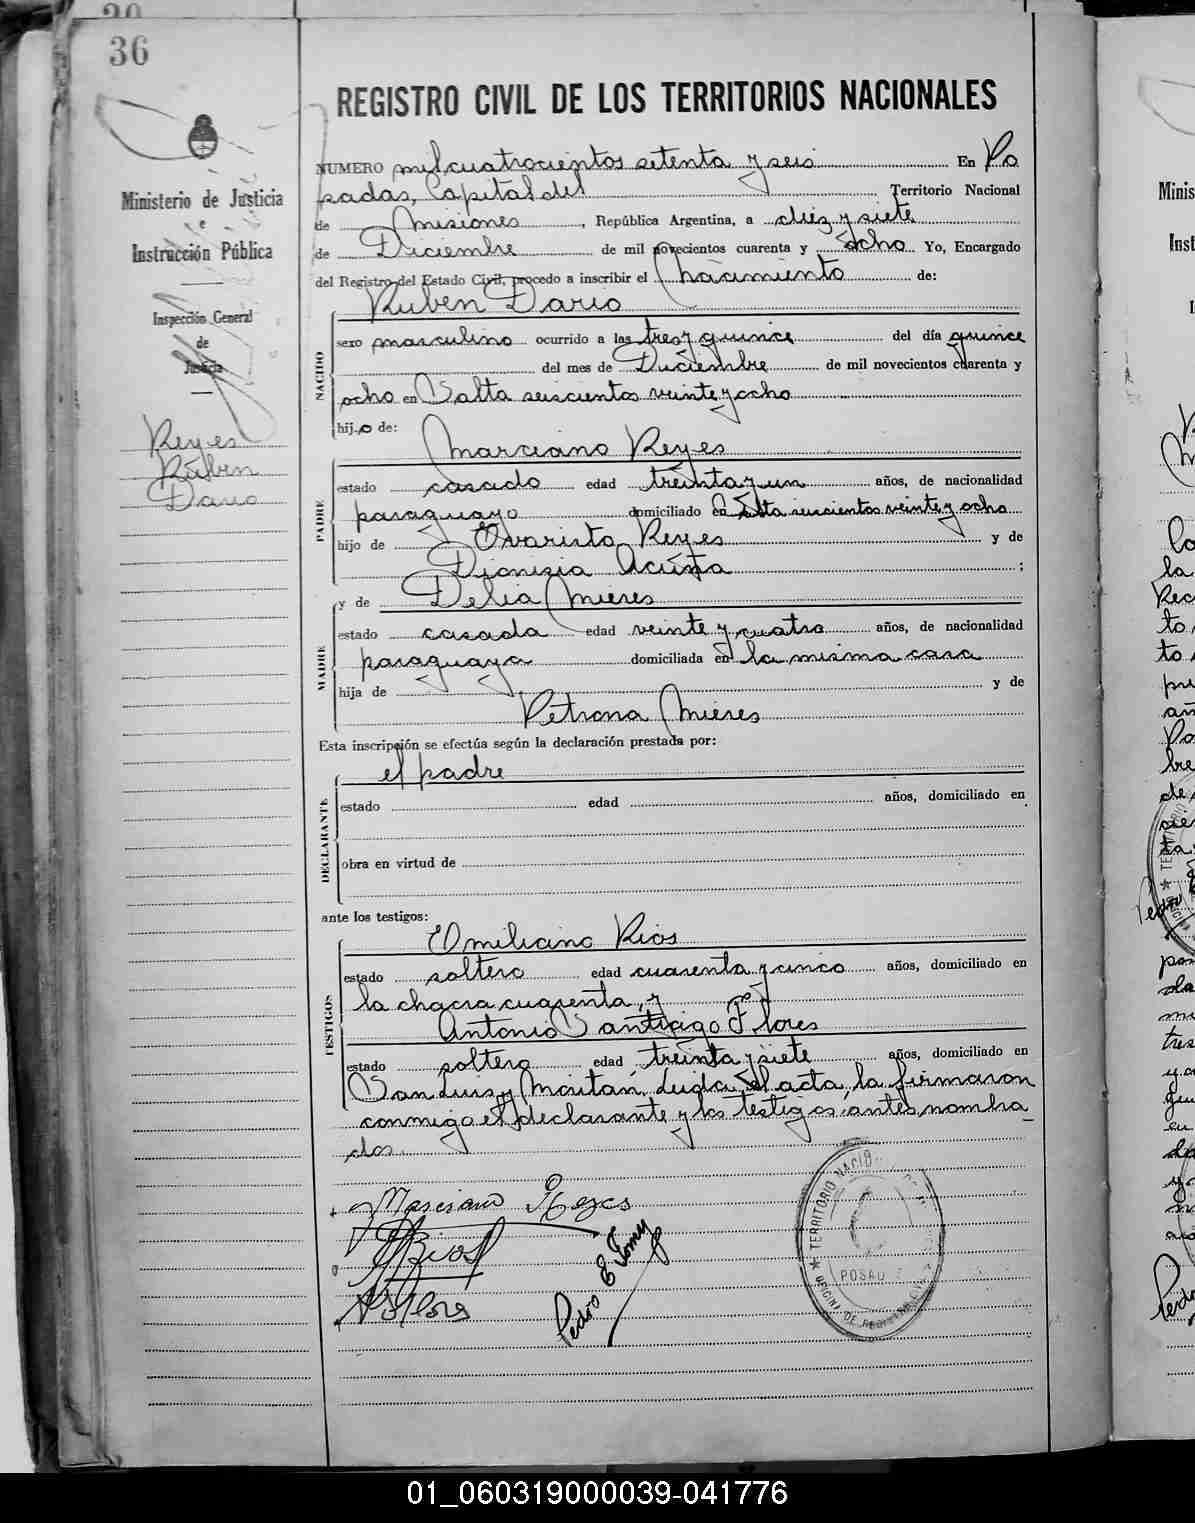 36
REGISTRO CIVIL DE LOS TERRITORIOS NACIONALES
Ministerio de Justicia
e
Instrucción Pública
Inspección General
de
Justicia
Reyes
Rúben
Dario
NUMERO mil cuatrocientos setenta y seis En Po
sadas, Capital del Territorio Nacional
de Misiones, República Argentina, a diez y siete
de Diciembre de mil novecientos cuarenta y ocho Yo, Encargado
del Registro del Estado Civil, procedo a inscribir el nacimiento de:
Ruben Dario
NACIDO
sexo masculino ocurrido a las tres y quince del día quince
del mes de Diciembre de mil novecientos cuarenta y
ocho en Salta seiscientos veinte y ocho
hij o de:
Marciano Reyes
PADRE
estado casado edad treinta y un años, de nacionalidad
paraguayo domiciliado en Salta seiscientos veinte y ocho
hijo de Evaristo Reyes y de
Dionisia Acuña ;
y de Delia Mieres
MADRE
estado casada edad veinte y cuatro años, de nacionalidad
paraguaya domiciliada en la misma casa
hija de y de
Petrona Mieres
Esta inscripción se efectúa según la declaración prestada por:
el padre
DECLARANTE
estado edad años, domiciliado en
obra en virtud de
ante los testigos:
Emiliano Rios
TESTIGOS
estado soltero edad cuarenta y cinco años, domiciliado en
la chacra cuarenta, y
Antonio Santiago Flores
estado soltero edad treinta y siete años, domiciliado en
San Luis y Maitan. Leida el acta, la firmaron
conmigo el declarante y los testigos antes nombra
dos.
Marciano Reyes
Rios
Flores
Pedro E
TERRITORIO NACIO
POSAD
OFICINA DE
01_060319000039-041776